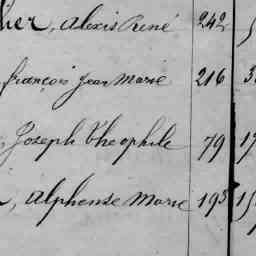 her, Alexis René 242
françois Jean Marie 216
, Joseph Théophile 79 17
, Alphonse Marie 193